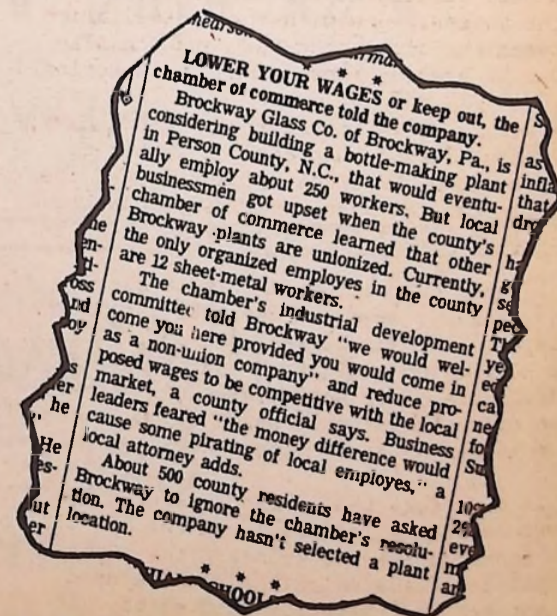 LOWER YOUR WAGES or keep out, the
chamber of commerce told the company.
Brockway Glass Co. of Brockway, Pa., is
considering building a bottle-making plant
in Person County, N.C., that would eventu-
ally employ about 250 workers. But local
businessmen got upset when the county's
chamber of commerce learned that other
Brockway plants are unionized. Currently,
the only organized employes in the county
are 12 sheet-metal workers.
The chamber's industrial development
committee told Brockway "we would wel-
come you here provided you would come in
as a non-union company" and reduce pro-
posed wages to be competitive with the local
market, a county official says. Business
leaders feared "the money difference would
cause some pirating of local employes," a
local attorney adds.
About 500 county residents have asked
Brockway to ignore the chamber's resolu-
tion. The company hasn't selected a plant
location.